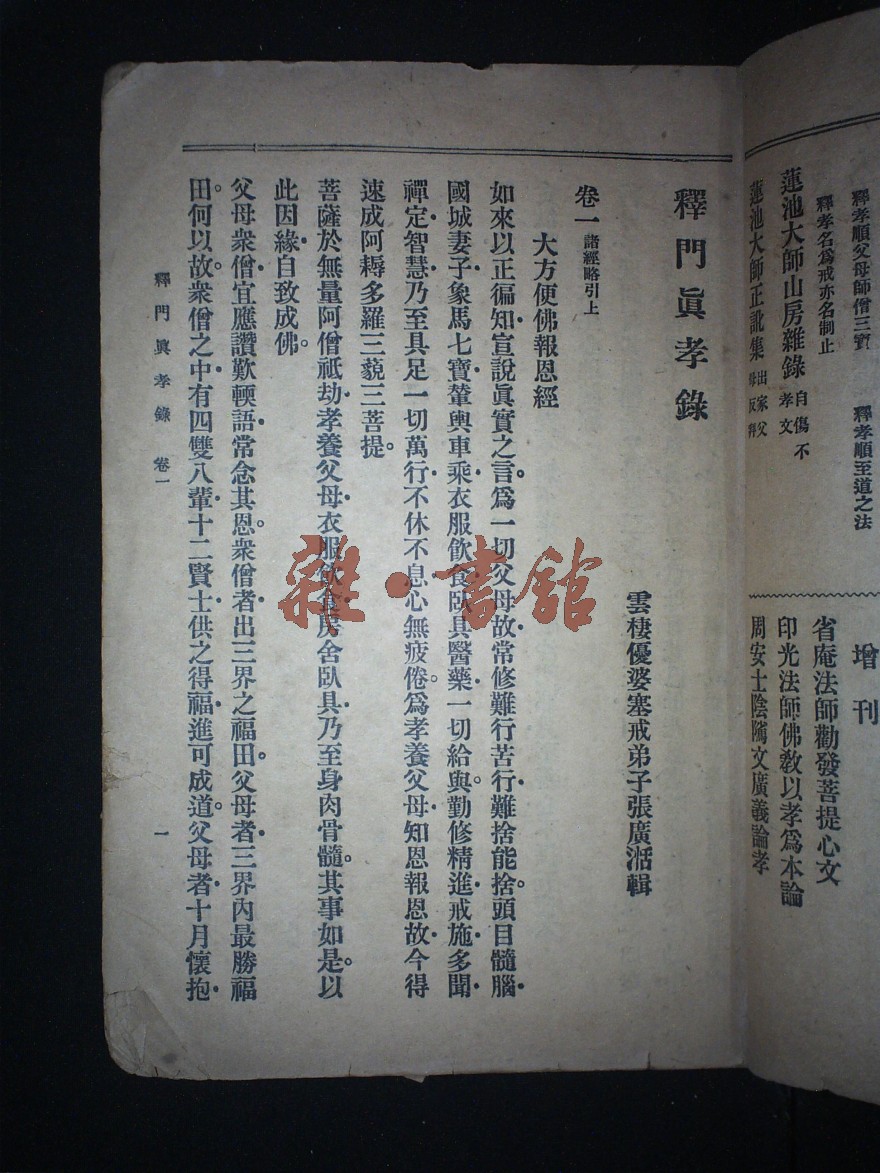 釋孝順父母師僧三寶　釋孝順至道之法
釋孝名爲戒亦名制止
蓮池大師山房雜錄 自傷不孝文
蓮池大師正訛集 出家父母反拜
增刊
省庵法師勸發菩提心文
印光法師佛教以孝爲本論
周安士陰隲文廣義論孝
釋門眞孝錄
雲棲優婆塞戒弟子張廣湉輯
卷一 諸經略引上
大方便佛報恩經
如來以正徧知・宣說眞實之言。爲一切父母故・常修難行苦行・難捨能捨。頭目髓腦・
國城妻子・象馬七寶・輦輿車乘・衣服飲食・臥具醫藥・一切給與。勤修精進・戒施多聞・
禪定智慧・乃至具足一切萬行・不休不息・心無疲倦。爲孝養父母・知恩報恩故・今得
速成阿耨多羅三藐三菩提。
菩薩於無量阿僧祇劫・孝養父母・衣服飲食・房舍臥具・乃至身肉骨髓。其事如是。以
此因緣・自致成佛。
父母衆僧・宜應讚歎輭語・常念其恩。衆僧者・出三界之福田。父母者・三界內最勝福
田。何以故。衆僧之中・有四雙八輩・十二賢士・供之得福・進可成道。父母者・十月懷抱・
釋門眞孝錄　卷一
一
雜・書館